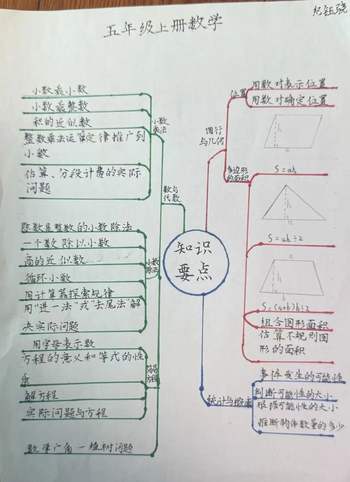 五年级上册数学
小数乘小数
小数乘整数
积的近似数
整数乘法运算定律推广到
小数
估算、分段计费的实际
问题
小数
乘法
除数是整数的小数除法
一个数除以小数
商的近似数
循环小数
用计算器探索规律
用"进一法"或"去尾法"解
决实际问题
小数
除法
用字母表示数
方程的意义和等式的性
质
解方程
实际问题与方程
简易
方程
数学广角—植树问题
数与
代数
知识
要点
图形
与几何
位置
用数对表示位置
用数对确定位置
多边形
的面积
S=ah
S=ah÷2
S=(a+b)h÷2
组合图形面积
估算不规则图
形的面积
统计与概率
事件发生的可能性
判断可能性的大小
根据可能性的大小
推断物体数量的多少